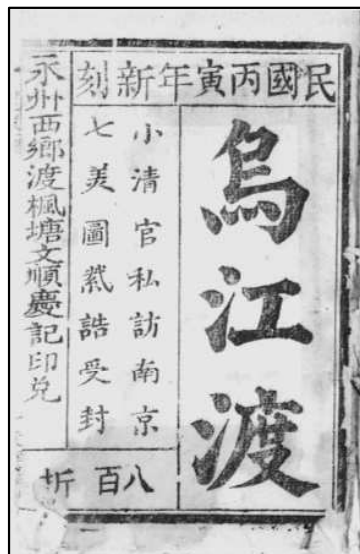 民國丙寅年新刻
烏江渡
小清官私訪南京
七美圖誥受封
八百圻
永州西鄉渡楓塘文順慶記印兑